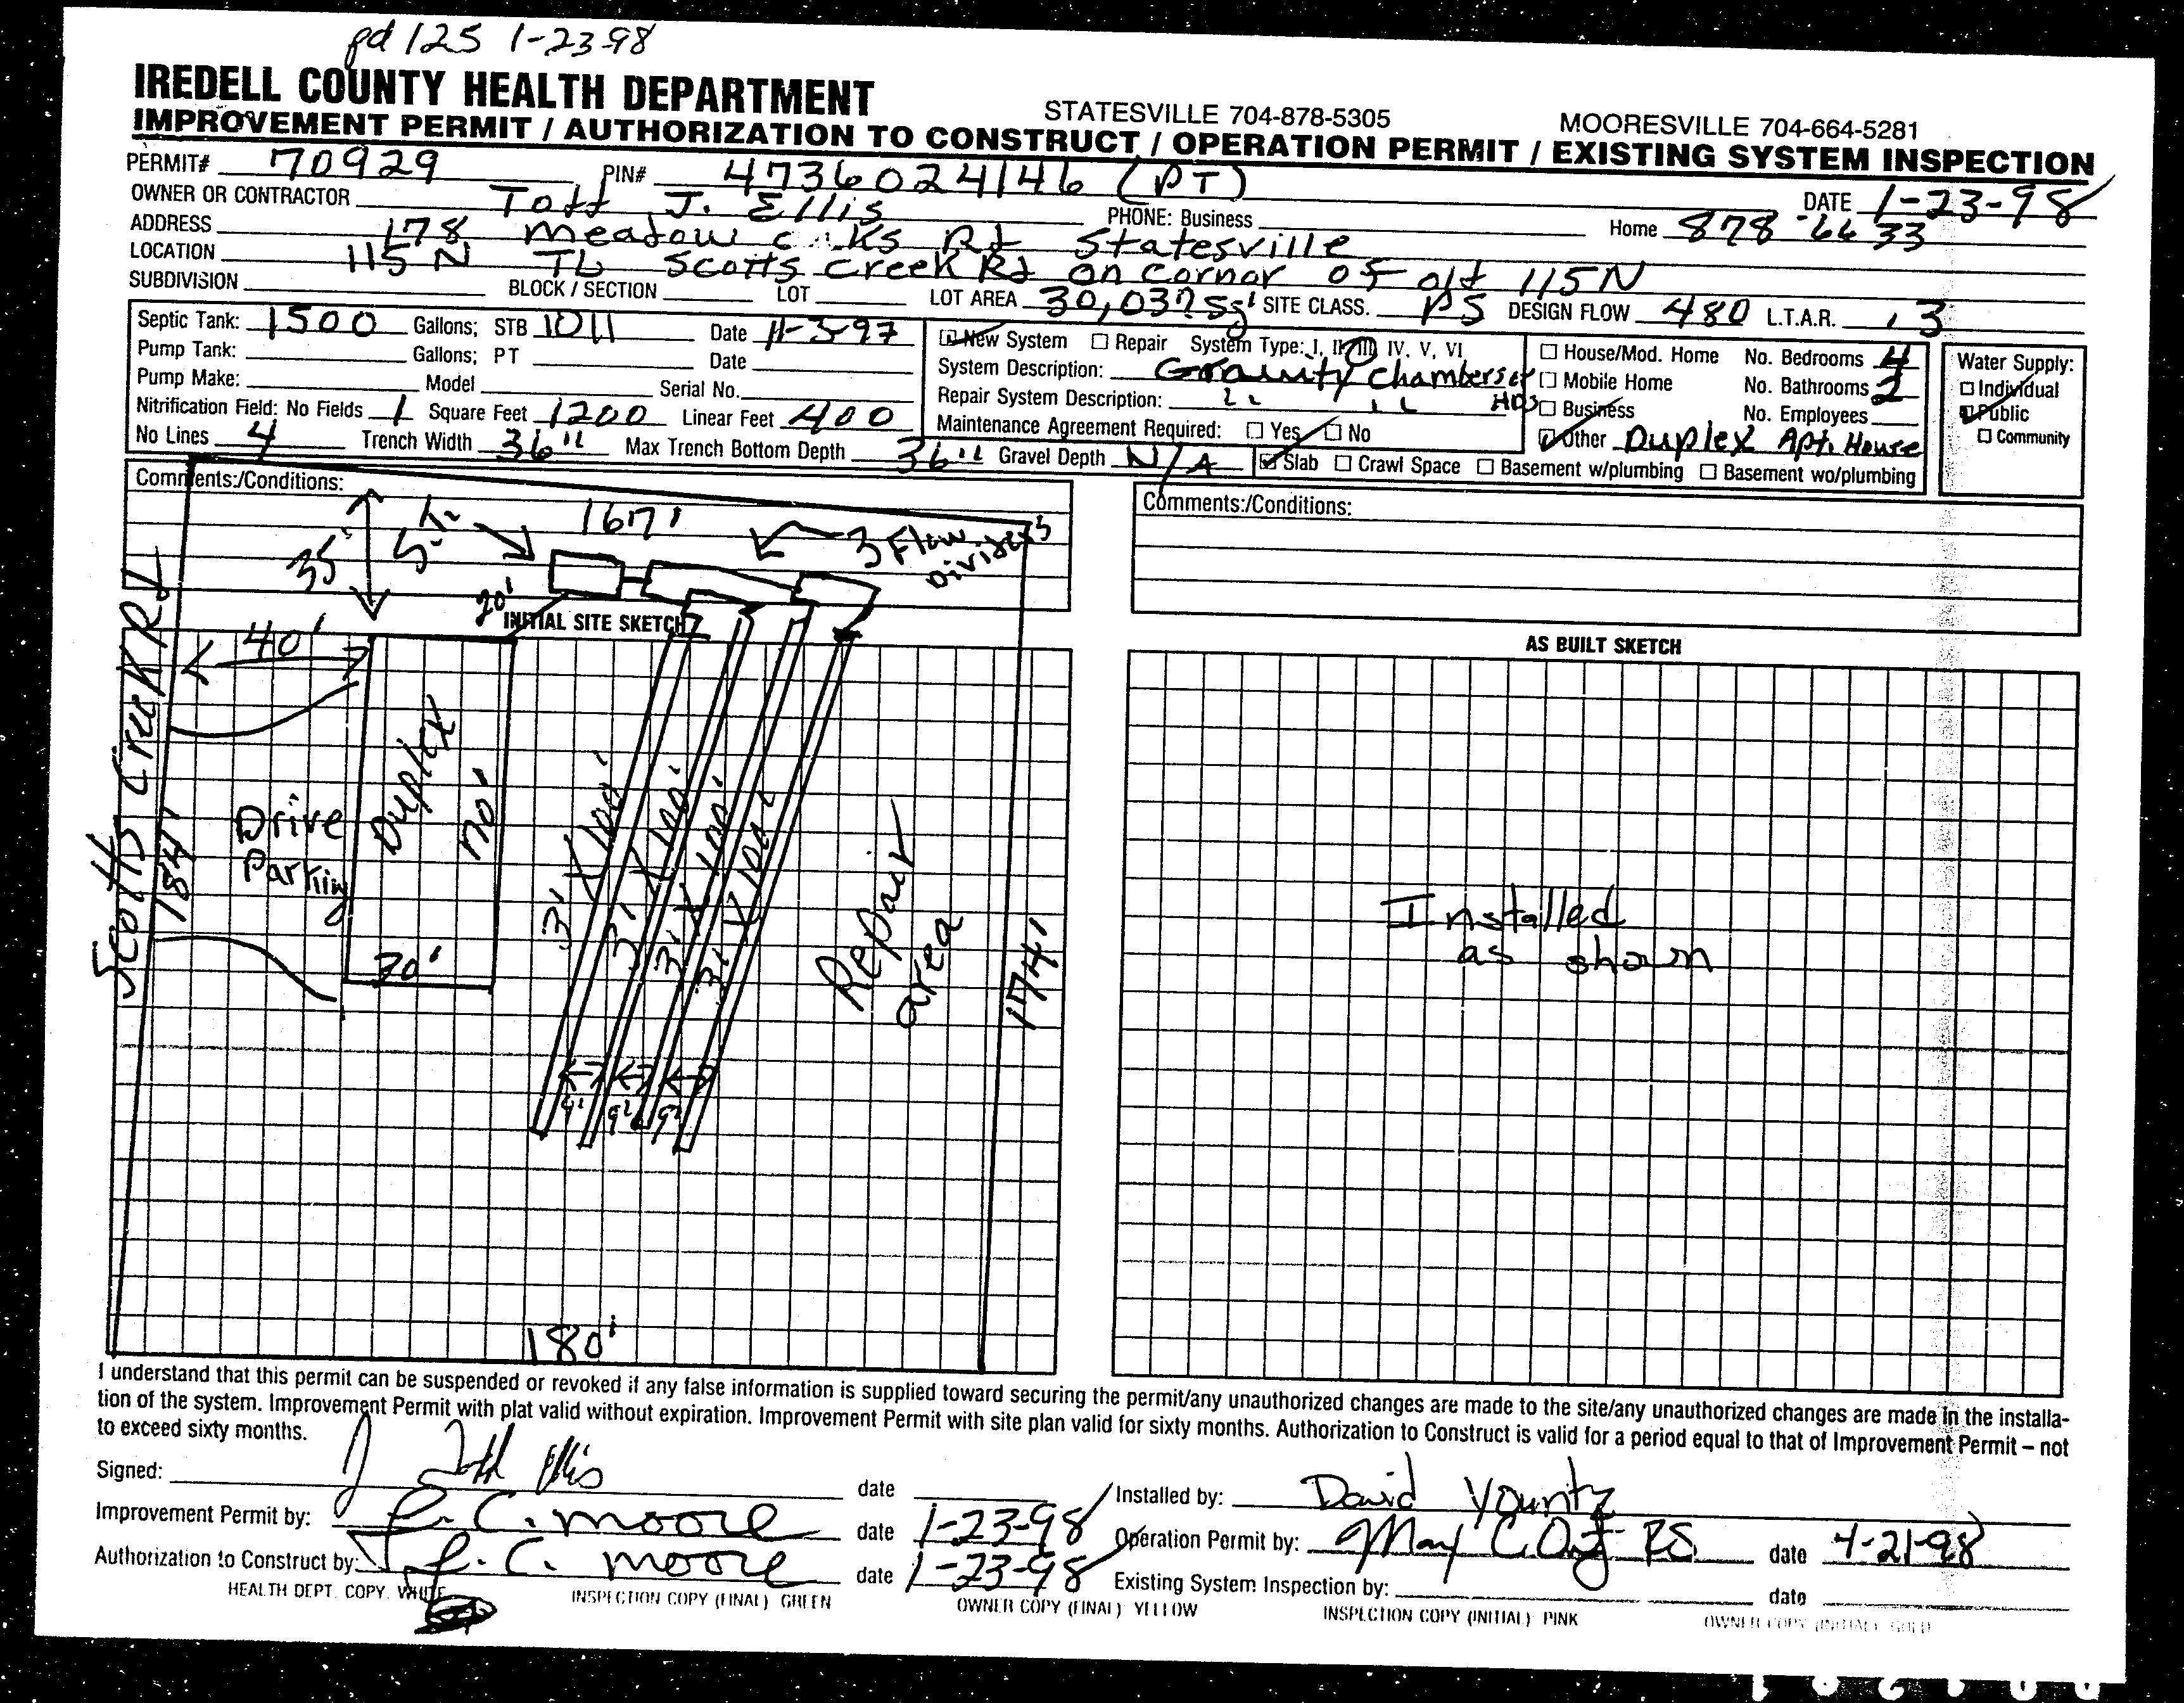 pd 125 1-23-98
IREDELL COUNTY HEALTH DEPARTMENT
STATESVILLE 704-878-5305 MOORESVILLE 704-664-5281
IMPROVEMENT PERMIT / AUTHORIZATION TO CONSTRUCT / OPERATION PERMIT / EXISTING SYSTEM INSPECTION
PERMIT# 70929 PIN# 4736024146 (PT) DATE 1-23-98
OWNER OR CONTRACTOR Todd J. Ellis PHONE: Business Home 878-6633
ADDRESS 178 Meadow Rd Statesville
LOCATION 115 N TL Scotts Creek Rd on Cornor of old 115 N
SUBDIVISION BLOCK / SECTION LOT LOT AREA 30,037 SITE CLASS. PS DESIGN FLOW 480 L.T.A.R. .3
Septic Tank: 1500 Gallons; STB 1011 Date 11-3-97
Pump Tank: Gallons; PT Date
Pump Make: Model Serial No.
Nitrification Field: No Fields 1 Square Feet 1200 Linear Feet 400
No Lines 4 Trench Width 36" Max Trench Bottom Depth 36" Gravel Depth N/A
New System Repair System Type: I, II, III, IV, V, VI
System Description: Gravity Chambers or
Repair System Description: " " HDS
Maintenance Agreement Required: Yes No
House/Mod. Home No. Bedrooms 4
Mobile Home No. Bathrooms 2
Business No. Employees
Other Duplex Apt. House
Slab Crawl Space Basement w/plumbing Basement wo/plumbing
Water Supply:
Individual
Public
Community
Comments:/Conditions:
167'
3 Flow Dividers
35'
5'
20'
INITIAL SITE SKETCH
40'
Scotts Creek Rd
184'
Drive
Parking
Duplex
70'
30'
3' X 100'
3' X 100'
3' X 100'
3' X 100'
9' 9' 9'
Repair
area
174'
180'
Comments:/Conditions:
AS BUILT SKETCH
Installed
as shown
I understand that this permit can be suspended or revoked if any false information is supplied toward securing the permit/any unauthorized changes are made to the site/any unauthorized changes are made in the installa-
tion of the system. Improvement Permit with plat valid without expiration. Improvement Permit with site plan valid for sixty months. Authorization to Construct is valid for a period equal to that of Improvement Permit – not
to exceed sixty months.
Signed: J Todd Ellis date
Improvement Permit by: C. Moore date 1-23-98
Authorization to Construct by: C. Moore date 1-23-98
Installed by: David Yountz
Operation Permit by: RS date 4-21-98
Existing System Inspection by: date
HEALTH DEPT. COPY. WHITE INSPECTION COPY (FINAL) GREEN OWNER COPY (FINAL) YELLOW INSPECTION COPY (INITIAL) PINK OWNER COPY (INITIAL) GOLD